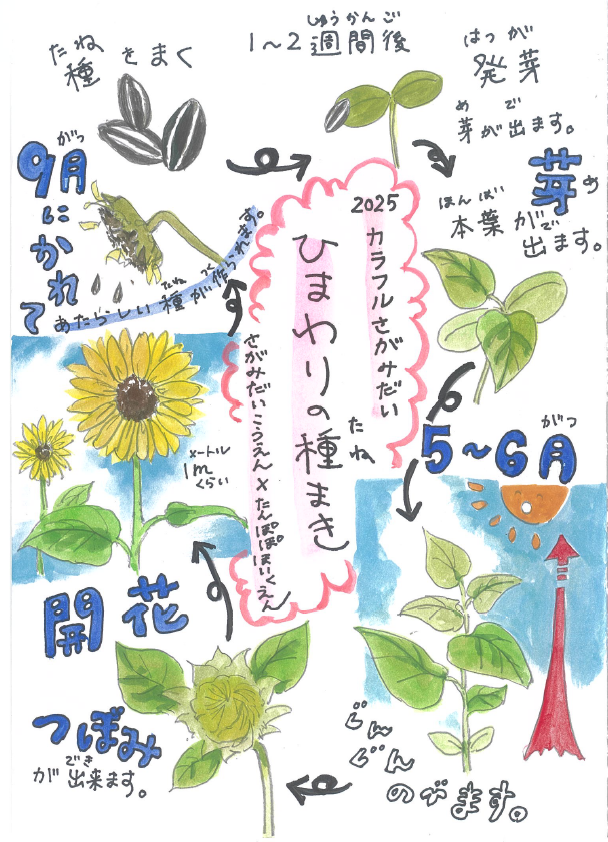 たね
種をまく
しゅうかんご
1～2週間後
はつが
発芽
め で
芽が出ます。
芽め
ほんば
本葉がで
出ます。
2025
カラフルさがみだい
ひまわりの種まき
たね
さがみだいこうえん×たんぽぽほいくえん
5～6月
がつ
ぐんぐん
のびます。
つぼみ
でき
が出来ます。
開花
メートル
1m
くらい
9月にかれて
がつ
あたらしい種が作られます。
たね つく